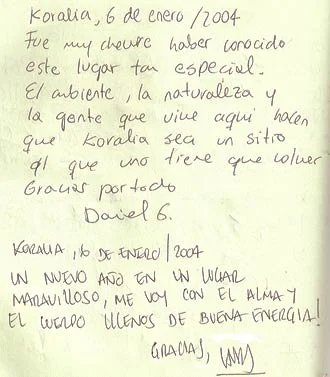 Koralia, 6 de enero /2004
Fue muy chevre haber conocido
este lugar tan especial.
El ambiente, la naturaleza y
la gente que vive aqui hacen
que Koralia sea un sitio
al que uno tiene que volver
Gracias por todo
Daniel G.
KORALIA, 6 DE ENERO/2004
UN NUEVO AÑO EN UN LUGAR
MARAVILLOSO, ME VOY CON EL ALMA Y
EL CUERPO LLENOS DE BUENA ENERGIA!
GRACIAS,